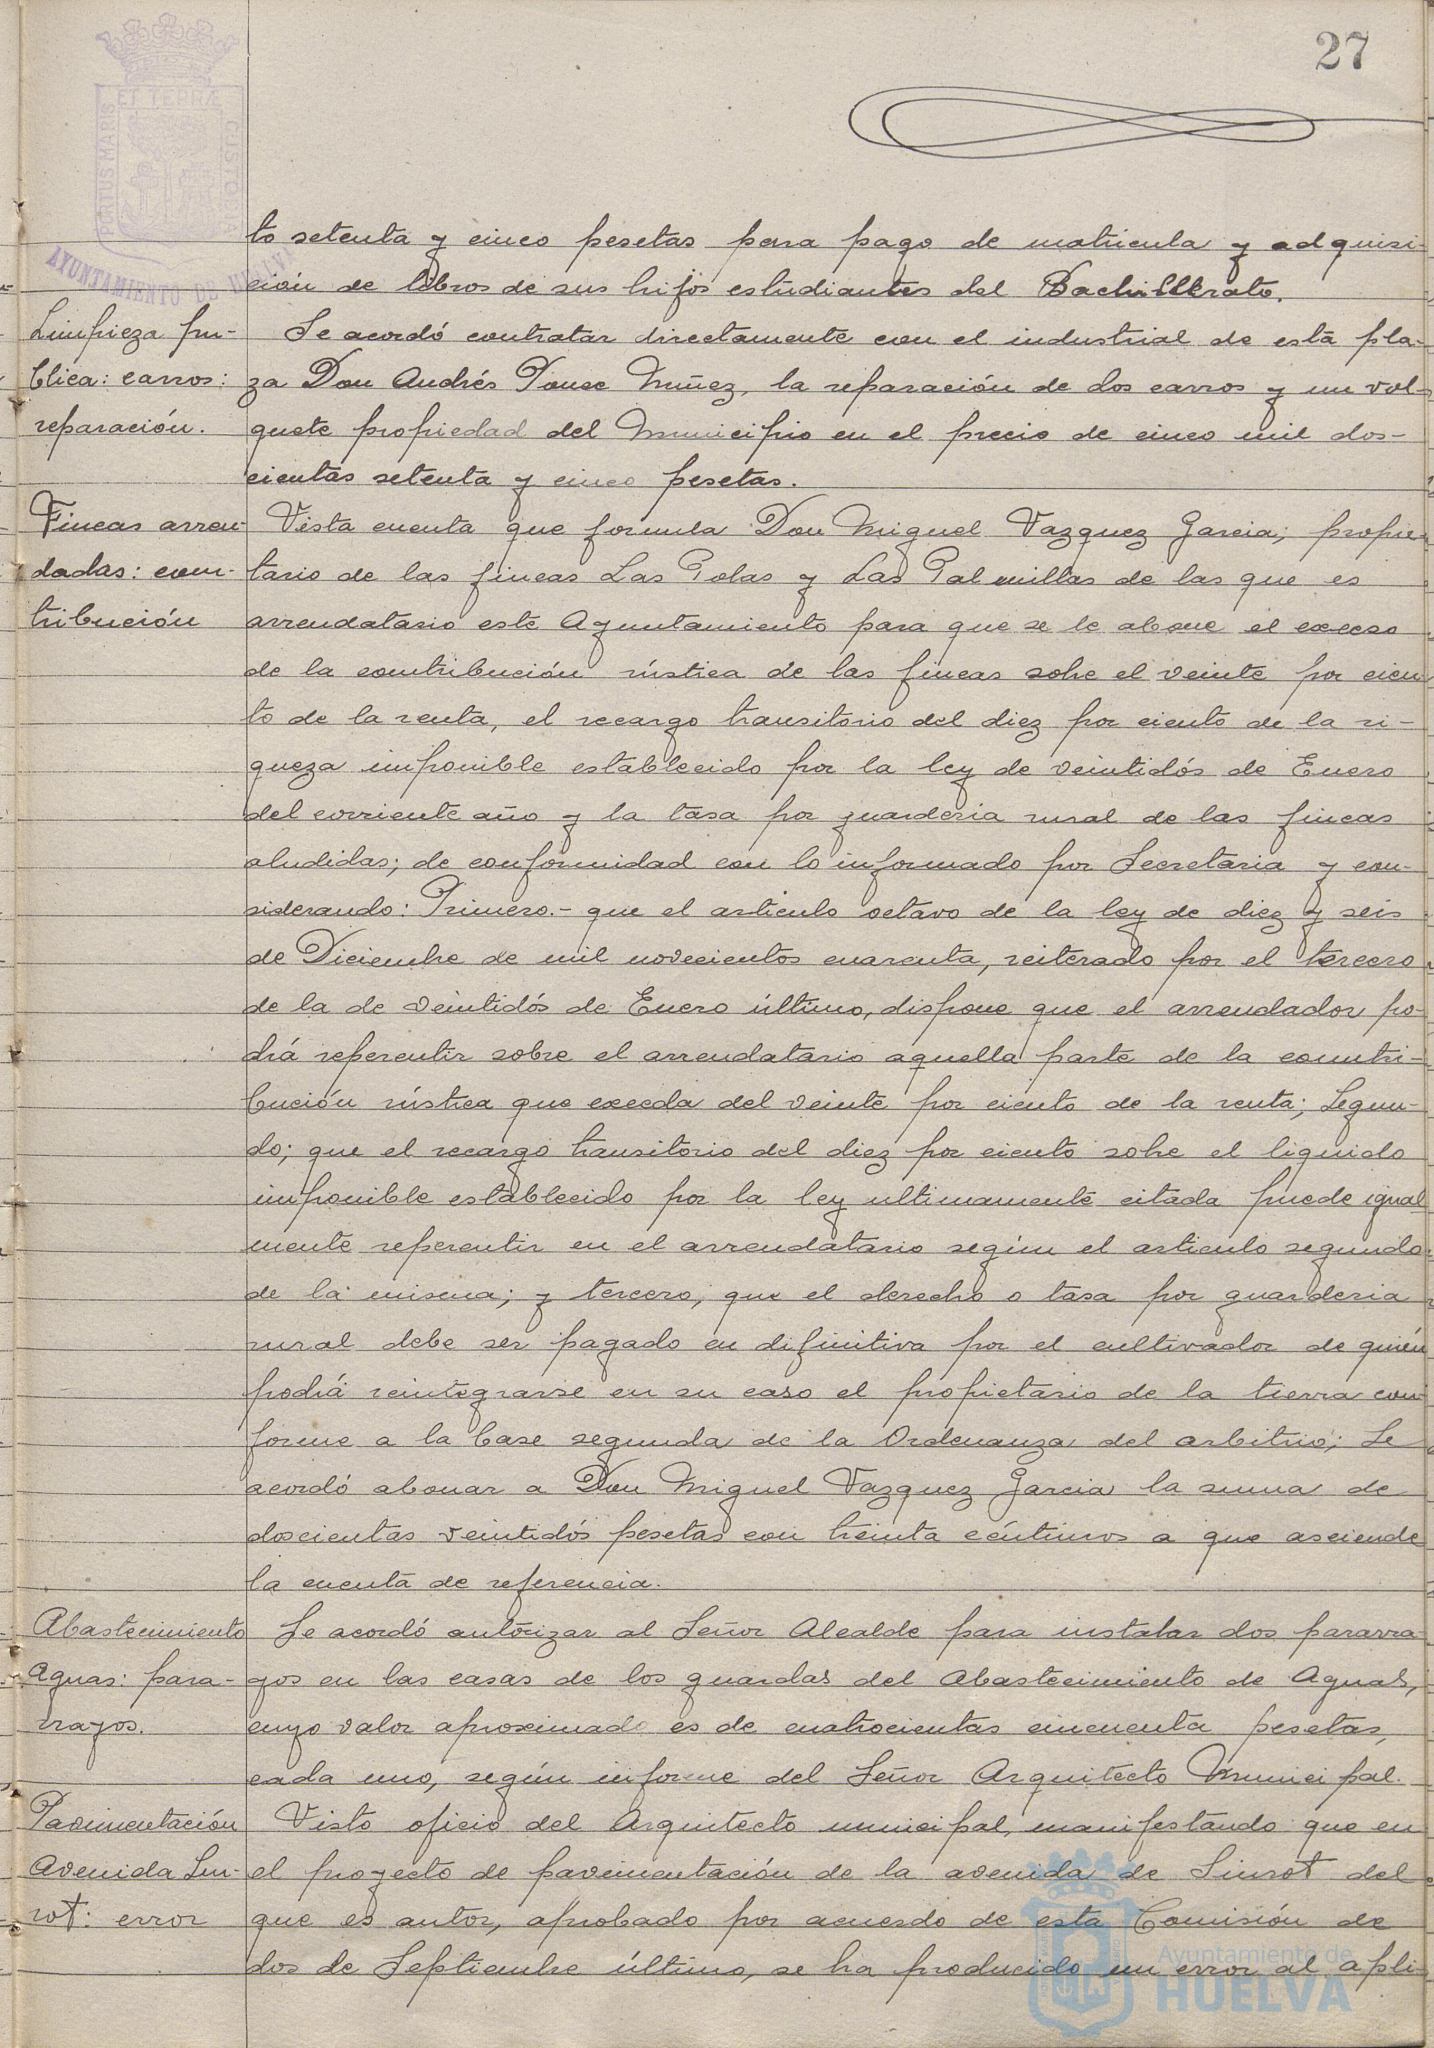 27
PORTUS MARIS ET TERRÆ CUSTODIA
AYUNTAMIENTO DE HUELVA
to setenta y cinco pesetas para pago de matricula y adquisi-
ción de libros de sus hijos estudiantes del Bachillerato.
Limpieza pú-
blica: carros:
reparación.
Se acordó contratar directamente con el industrial de esta pla-
za Don Andrés Ponce Núñez, la reparación de dos carros y un vol-
quete propiedad del Municipio en el precio de cinco mil dos-
cientas setenta y cinco pesetas.
Fincas arren-
dadas: con-
tribución
Vista cuenta que formula Don Miguel Vazquez Garcia; propie-
tario de las fincas Las Polas y Las Palmillas de las que es
arrendatario este Ayuntamiento para que se le abone el exceso
de la contribución rústica de las fincas sobre el veinte por cien-
to de la renta, el recargo transitorio del diez por ciento de la ri-
queza imponible establecido por la ley de veintidós de Enero
del corriente año y la tasa por guarderia rural de las fincas
aludidas; de conformidad con lo informado por Secretaria y con-
siderando: Primero.- que el articulo octavo de la ley de diez y seis
de Diciembre de mil novecientos cuarenta, reiterado por el tercero
de la de veintidós de Enero último, dispone que el arrendador po-
drá repercutir sobre el arrendatario aquella parte de la contri-
bución rústica que exceda del veinte por ciento de la renta; Segun-
do; que el recargo transitorio del diez por ciento sobre el liquido
imponible establecido por la ley ultimamente citada puede igual
mente repercutir en el arrendatario según el articulo segundo
de la misma; y tercero, que el derecho o tasa por guarderia
rural debe ser pagado en difinitiva por el cultivador de quién
podrá reintegrarse en su caso el propietario de la tierra con-
forme a la base segunda de la Ordenanza del arbitrio; Se
acordó abonar a Don Miguel Vazquez Garcia la suma de
doscientas veintidós pesetas con treinta céntimos a que asciende
la cuenta de referencia.
Abastecimiento
Aguas: para-
rrayos.
Se acordó autorizar al Señor Alcalde para instalar dos pararra-
yos en las casas de los guardas del Abastecimiento de Aguas,
cuyo valor aproximado es de cuatrocientas cincuenta pesetas,
cada uno, según informe del Señor Arquitecto Municipal.
Pavimentación
Avenida Sun-
rot: error
Visto oficio del Arquitecto municipal, manifestando que en
el proyecto de pavimentación de la avenida de Sunrot del
que es autor, aprobado por acuerdo de esta Comisión de
dos de Septiembre último, se ha producido un error al apli-
Ayuntamiento de
HUELVA